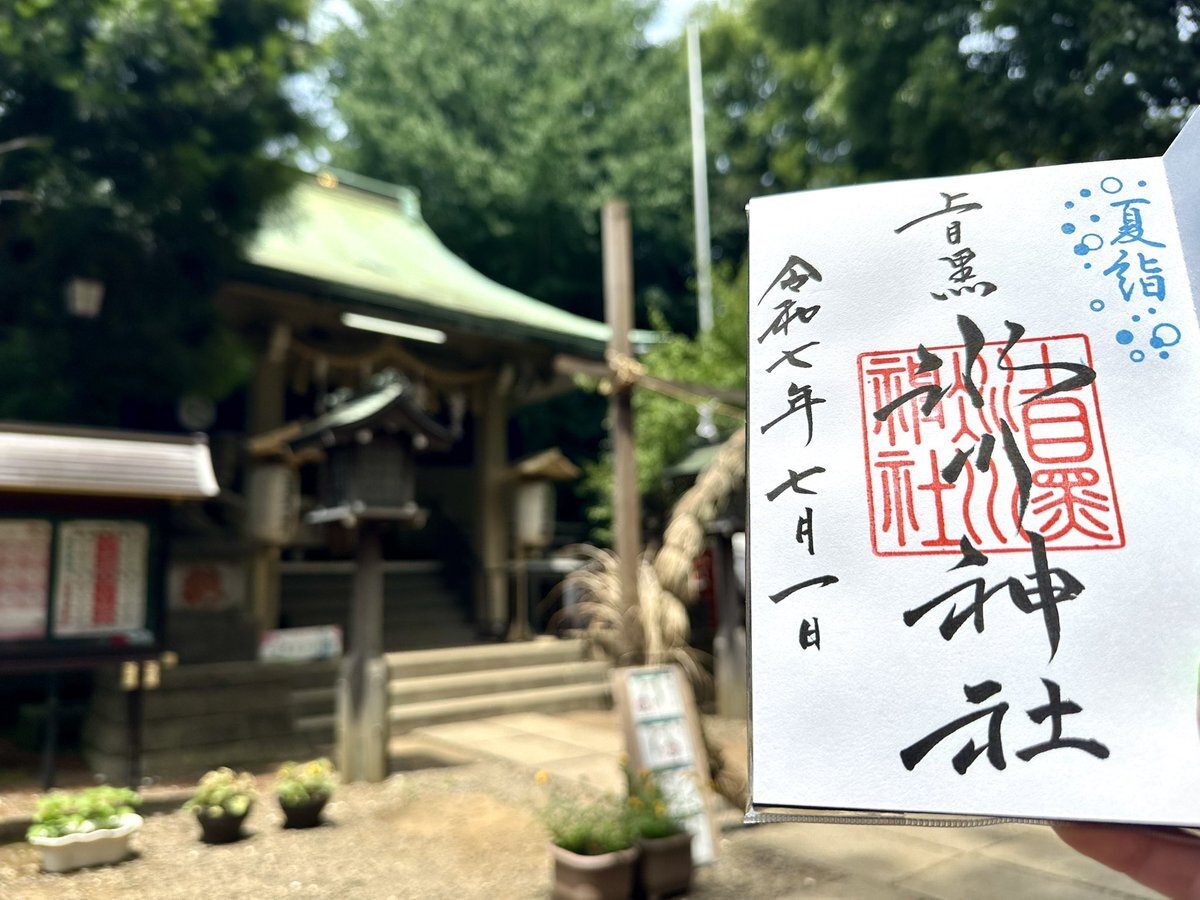 夏詣
上目黒
氷川神社
令和七年七月一日
上目黒
氷川
神社